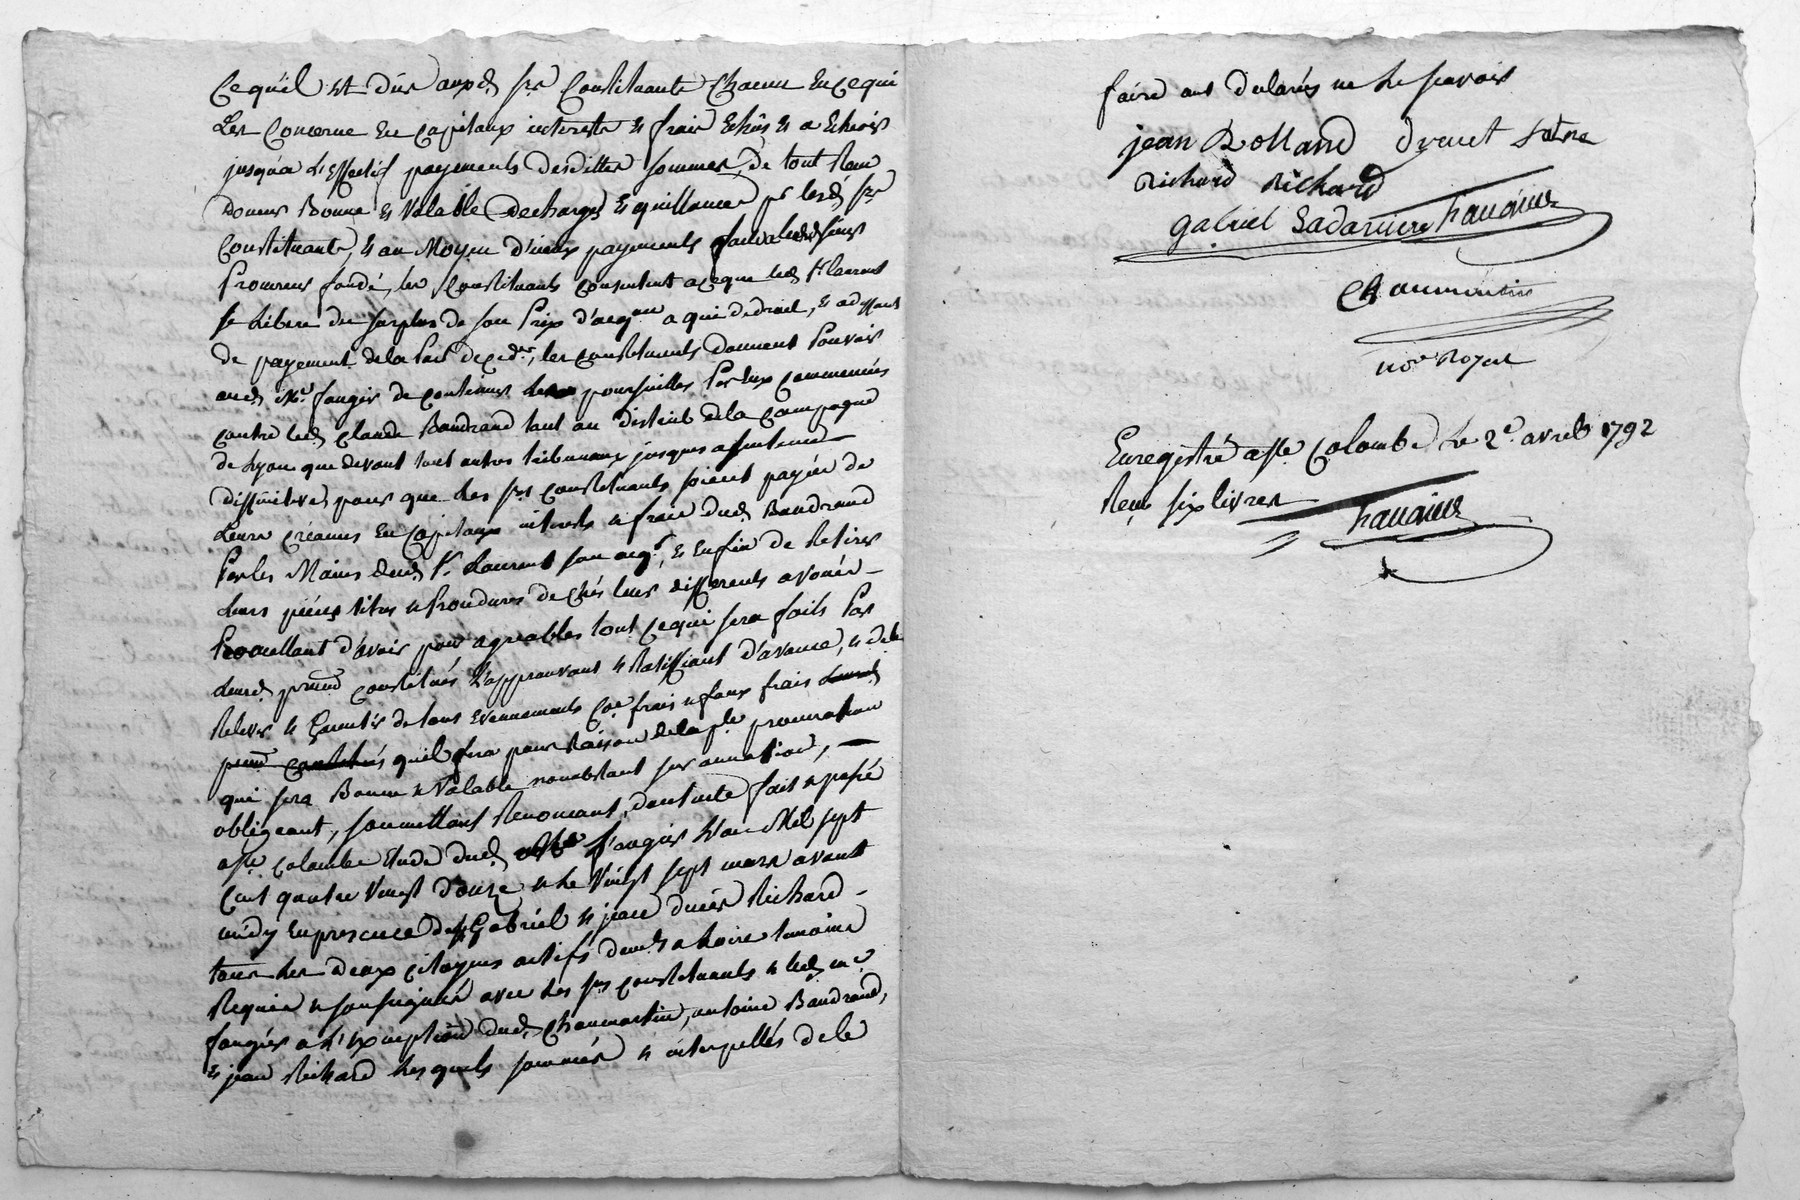 Cequil est dus auxd. srs Constituants Chacun en cequi
Les Concerne en Capitaux interests & frais Echûs & a Echeoir
jusqua L'Effectif payements desdittes sommes, de tout Recu
Donner Bonne & Valable Decharge & quittance pr lesd. srs
Constituants, & au Moyen d'iceux payements
Procureur fondé, les Constituants consentent aceque led. sr laurent
se Libere du surplus de son Prix d'acqon a qui dedroit, & adeffaut
de payement dela Part de cedr, les constituants donnent Pouvoir
aud. Me fangier de continuer les poursuittes Par Eux commencées
contre led. claude Baudrand tant au district dela campagne
de Lyon que devant tout autres tribunaux jusques asentence
diffinitive, pour que les srs constituants soient payés de
Leurs créances en Capitaux interets & frais dud. Baudrand
Par les Mains dud. sr Laurent son acqr, & Enfin de Retirer
Leurs pièces titres & Procedures de Chés leurs differents avoués
Promettant d'avoir pour agreables tout cequi sera fait Par
Leurd. procur constitués L'approuvant & Ratiffiant d'avance, & dele
Relever & Garentir de tous evennements Coe frais & faux frais
quil fera pour Raison dela pte procuration
qui sera Bonne & Valable nonobstant surannation,
obligeant, soumettant Renonçant, dont acte fait & passé
a ste colombe Etude dud. fangier L'an Mil sept
Cent quatre Vingt Douze & Le Vingt sept mars avant
midy en presence de Gabriel & jean Richard
tous Les deux citoyens actifs dud. a Loire temoins
Requis & soussignés avec Les srs constituants & led. me
fangier a L'Exception dud. Chaumartin, antoine Baudrand,
& jean Richard Lesquels sommés & interpellés dele
faire ont declarés ne Le sçavoir
jean Rolland drevet
Richard Richard
gabriel
not Royal
Enregistré a ste Colombe Le 2e avril 1792
Reçu six livres